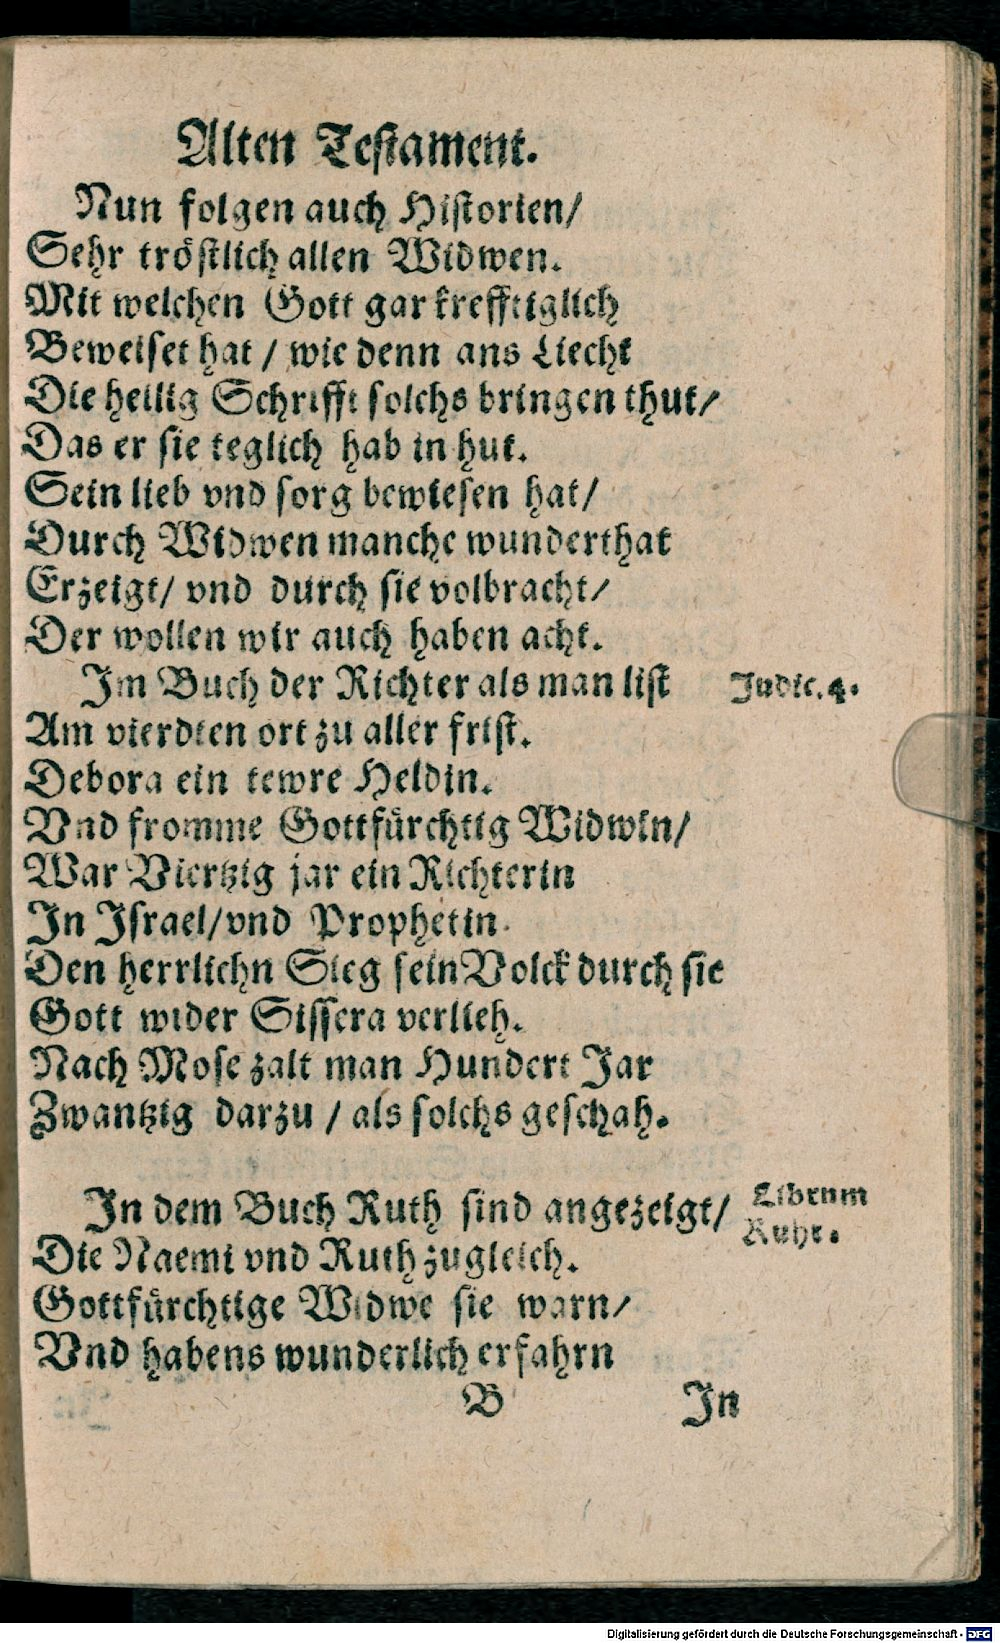 Alten Testament.
Nun folgen auch Historien/
Sehr tröstlich allen Widwen.
Mit welchen Gott gar krefftiglich
Beweiset hat / wie denn ans Liecht
Die heilig Schrifft solchs bringen thut/
Das er sie teglich hab in hut.
Sein lieb vnd sorg bewiesen hat/
Durch Widwen manche wunderthat
Erzeigt/ vnd durch sie volbracht/
Der wollen wir auch haben acht.
Im Buch der Richter als man list Judic. 4.
Am vierdten ort zu aller frist.
Debora ein tewre Heldin.
Vnd fromme Gottfürchtig Widwin/
War Viertzig jar ein Richterin
In Israel/vnd Prophetin.
Den herrlichn Sieg sein Volck durch sie
Gott wider Sissera verlieh.
Nach Mose zalt man Hundert Jar
Zwantzig darzu / als solchs geschah.
In dem Buch Ruth sind angezeigt/ Librum
Ruht.
Die Naemi vnd Ruth zugleich.
Gottfürchtige Widwe sie warn/
Vnd habens wunderlich erfahrn
B In
Digitalisierung gefördert durch die Deutsche Forschungsgemeinschaft - DFG